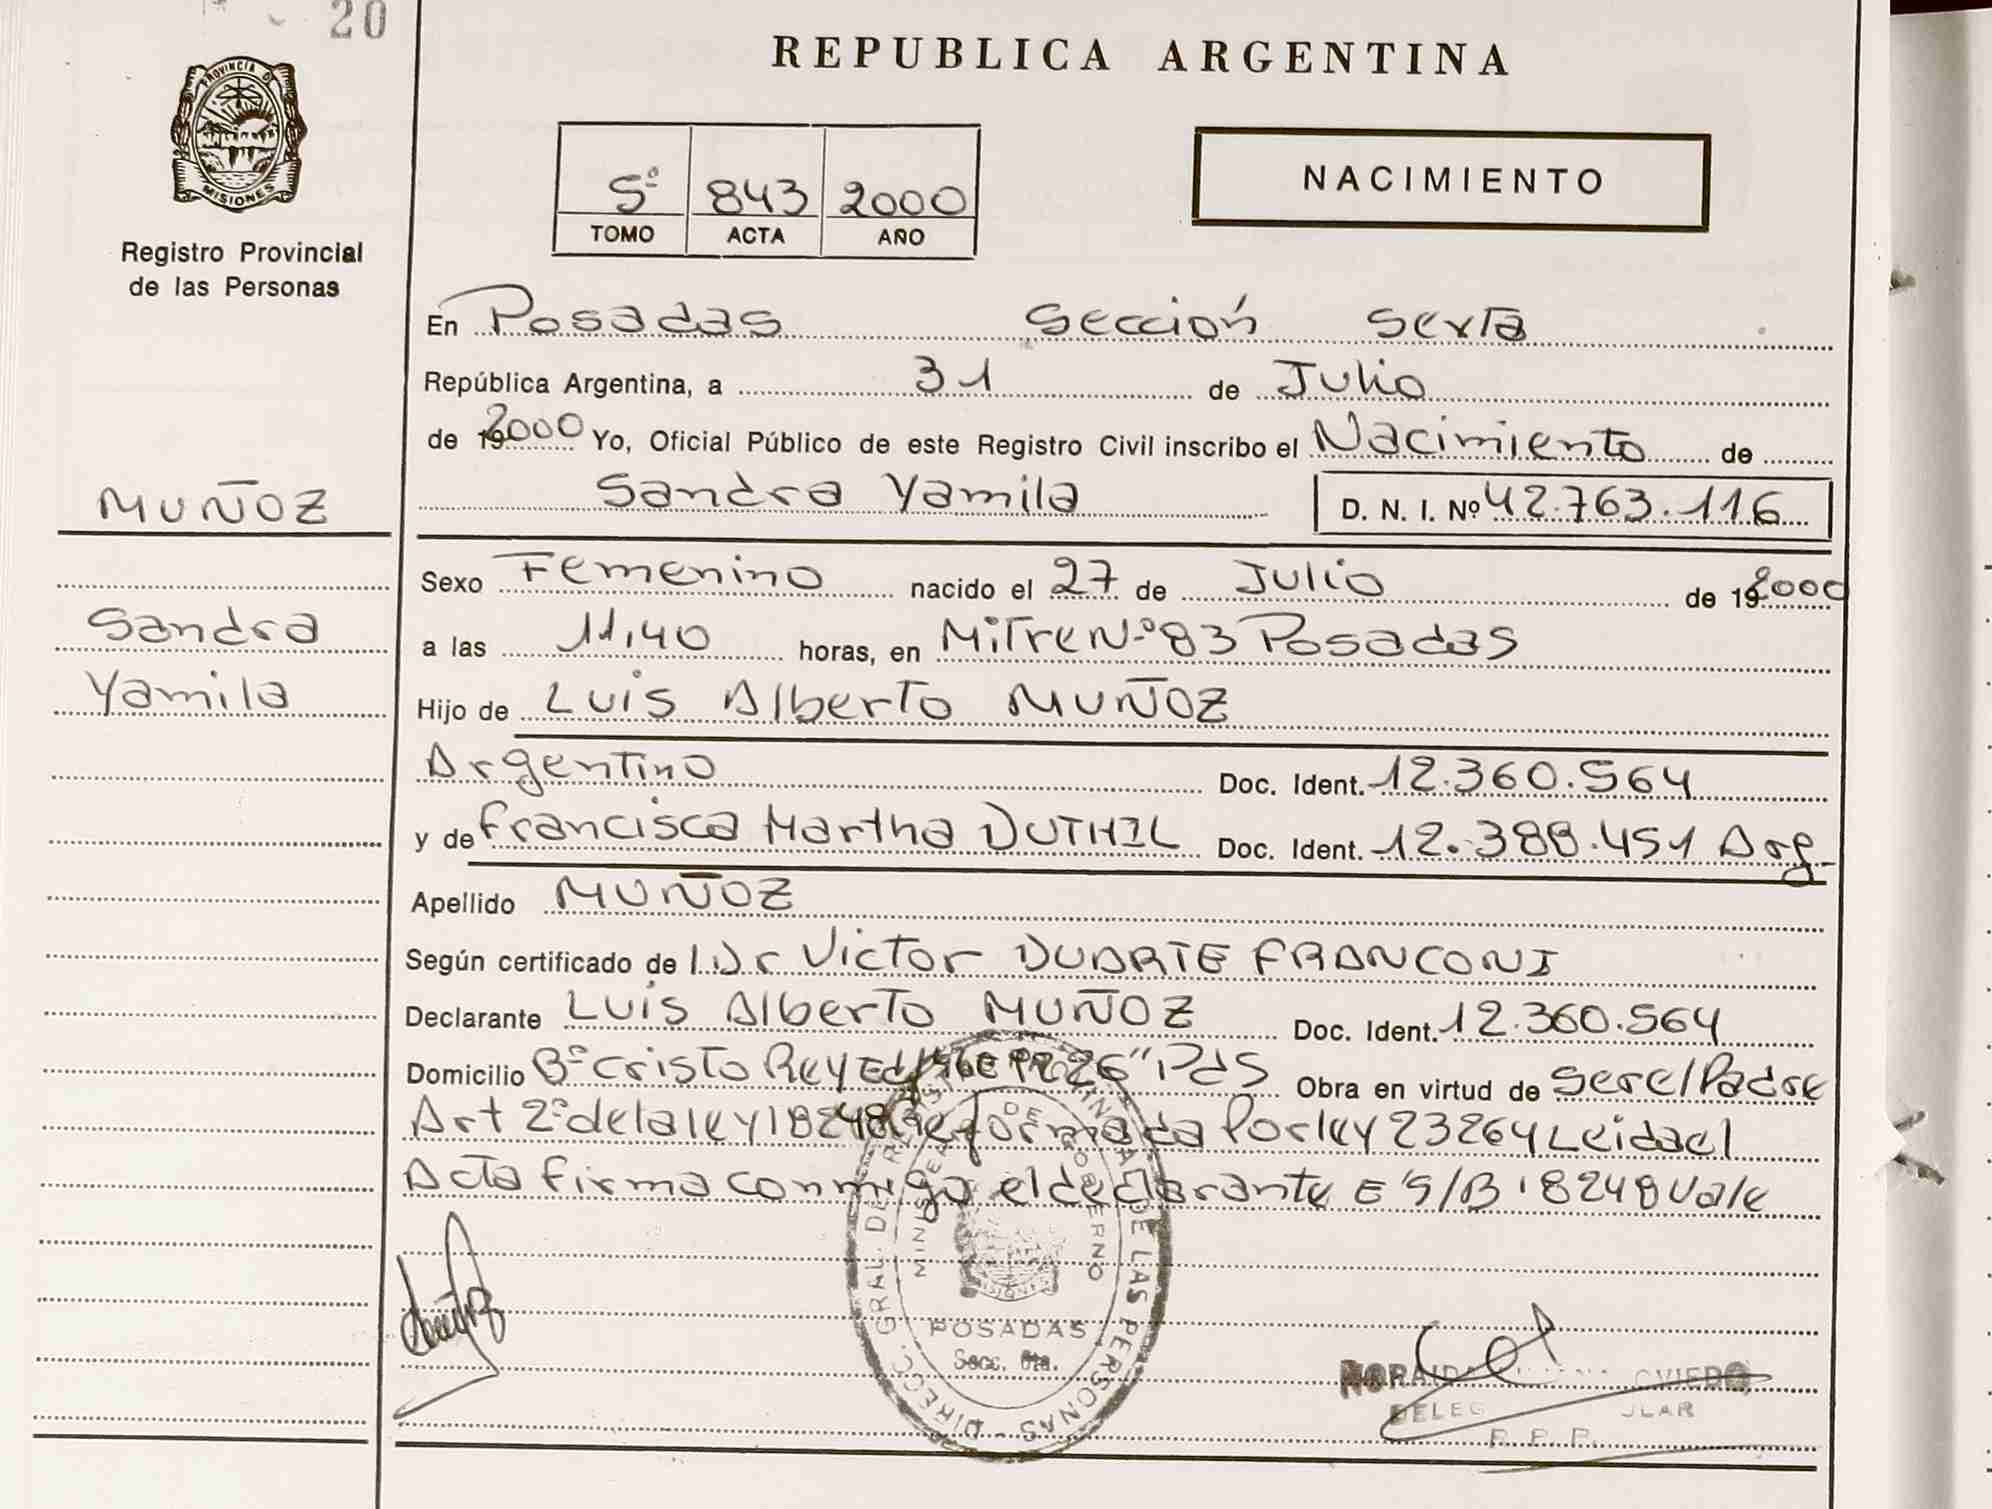 20
REPUBLICA ARGENTINA
PROVINCIA DE
MISIONES
Registro Provincial
de las Personas
5º 843 2000
TOMO ACTA AÑO
NACIMIENTO
En Posadas Sección Sexta
República Argentina, a 31 de Julio
de 192000 Yo, Oficial Público de este Registro Civil inscribo el Nacimiento de
Sandra Yamila D. N. I. Nº 42.763.116
MUÑOZ
Sandra
Yamila
Sexo Femenino nacido el 27 de Julio de 192000
a las 11,40 horas, en Mitre Nº 83 Posadas
Hijo de Luis Alberto MUÑOZ
Argentino Doc. Ident. 12.360.564
y de Francisca Martha DUTHIL Doc. Ident. 12.388.451 Arg.
Apellido MUÑOZ
Según certificado de l Dr Victor DUARTE FRANCONI
Declarante Luis Alberto MUÑOZ Doc. Ident. 12.360.564
Domicilio Bº Cristo Rey "26" Pds Obra en virtud de Ser el Padre
Art 2º de la ley 18248 Reformada Por ley 23264 Leida el
Acta firma conmigo el declarante E S/B 18248 Vale
DIRECC. GRAL. DE DE LAS PERSONAS
MINIS DE GOBIERNO
MISIONES
POSADAS
Secc. 6ta.
OVIEDO
R. P. P.